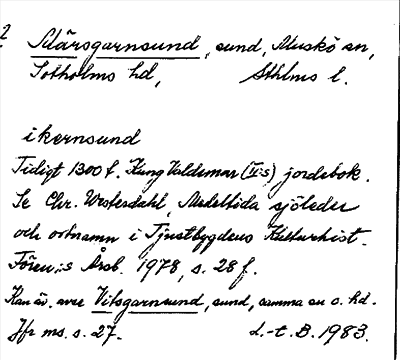 2
Märsgarnsund, sund, Muskö sn,
Sotholms hd, Sthlms l.
ikernsund
Tidigt 1300 t. Kung Valdemar (II:s) jordebok.
Se Chr. Westerdahl, Medeltida sjöleder
och ortnamn i Tjustbygdens Kulturhist.
Fören:s Årsb. 1978, s. 28 f.
Kan äv. avse Vitsgarnsund, sund, samma sn o. hd.
Jfr ms. s. 27. L.-t. B. 1983.